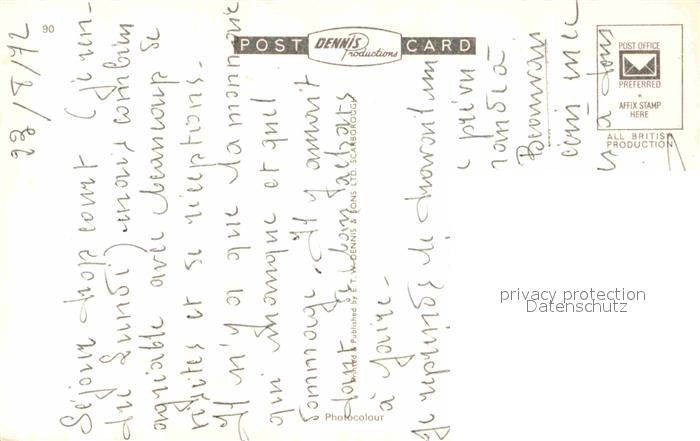 90
POST CARD
DENNIS
Productions
POST OFFICE
PREFERRED
AFFIX STAMP
HERE
ALL BRITISH
PRODUCTION
23/8/72
Séjour trop court (je ren-
tre Lundi) mais combien
agréable avec beaucoup de
visites et de réceptions.
Il n'y a que la monnaie
qui manque et quel
dommage. Il y aurait
tant de bons achats
à faire.
Je reprends le travail
Beauvais
à tous
Printed & Published by E. T. W. DENNIS & SONS LTD. SCARBOROUGH
Photocolour
privacy protection
Datenschutz